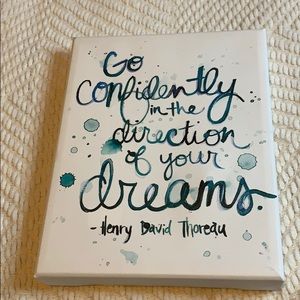 Go
confidently
in the
direction
of your
dreams.
- Henry David Thoreau